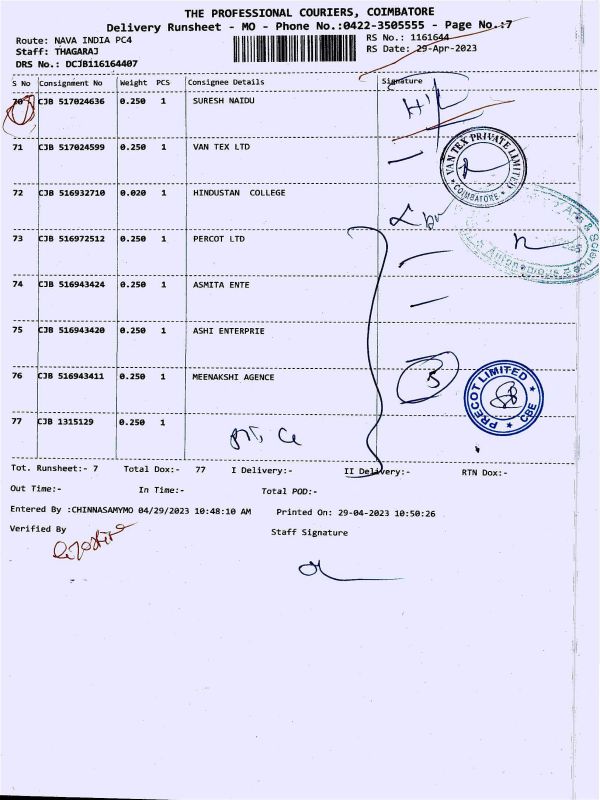 THE PROFESSIONAL COURIERS, COIMBATORE
Delivery Runsheet - MO - Phone No.:0422-3505555 - Page No.:7
Route: NAVA INDIA PC4
Staff: THAGARAJ
DRS No.: DCJB116164407
RS No.: 1161644
RS Date: 29-Apr-2023
S No Consignment No Weight PCS Consignee Details Signature
70 CJB 517024636 0.250 1 SURESH NAIDU
71 CJB 517024599 0.250 1 VAN TEX LTD
VAN TEX PRIVATE LIMITED
COIMBATORE
72 CJB 516932710 0.020 1 HINDUSTAN COLLEGE
Arts & Science
Autonomous
73 CJB 516972512 0.250 1 PERCOT LTD
74 CJB 516943424 0.250 1 ASMITA ENTE
75 CJB 516943420 0.250 1 ASHI ENTERPRIE
76 CJB 516943411 0.250 1 MEENAKSHI AGENCE
5
PRECOT LIMITED
CBE
77 CJB 1315129 0.250 1
Tot. Runsheet:- 7 Total Dox:- 77 I Delivery:- II Delivery:- RTN Dox:-
Out Time:- In Time:- Total POD:-
Entered By :CHINNASAMYMO 04/29/2023 10:48:10 AM Printed On: 29-04-2023 10:50:26
Verified By Staff Signature